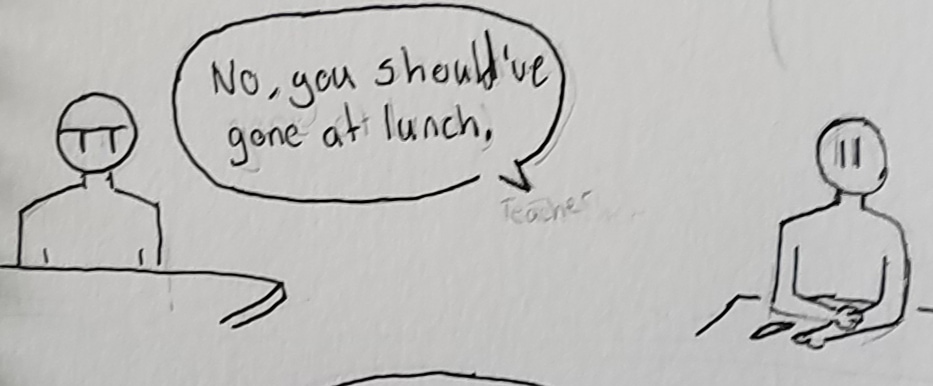 No, you should've
gone at lunch.
Teacher